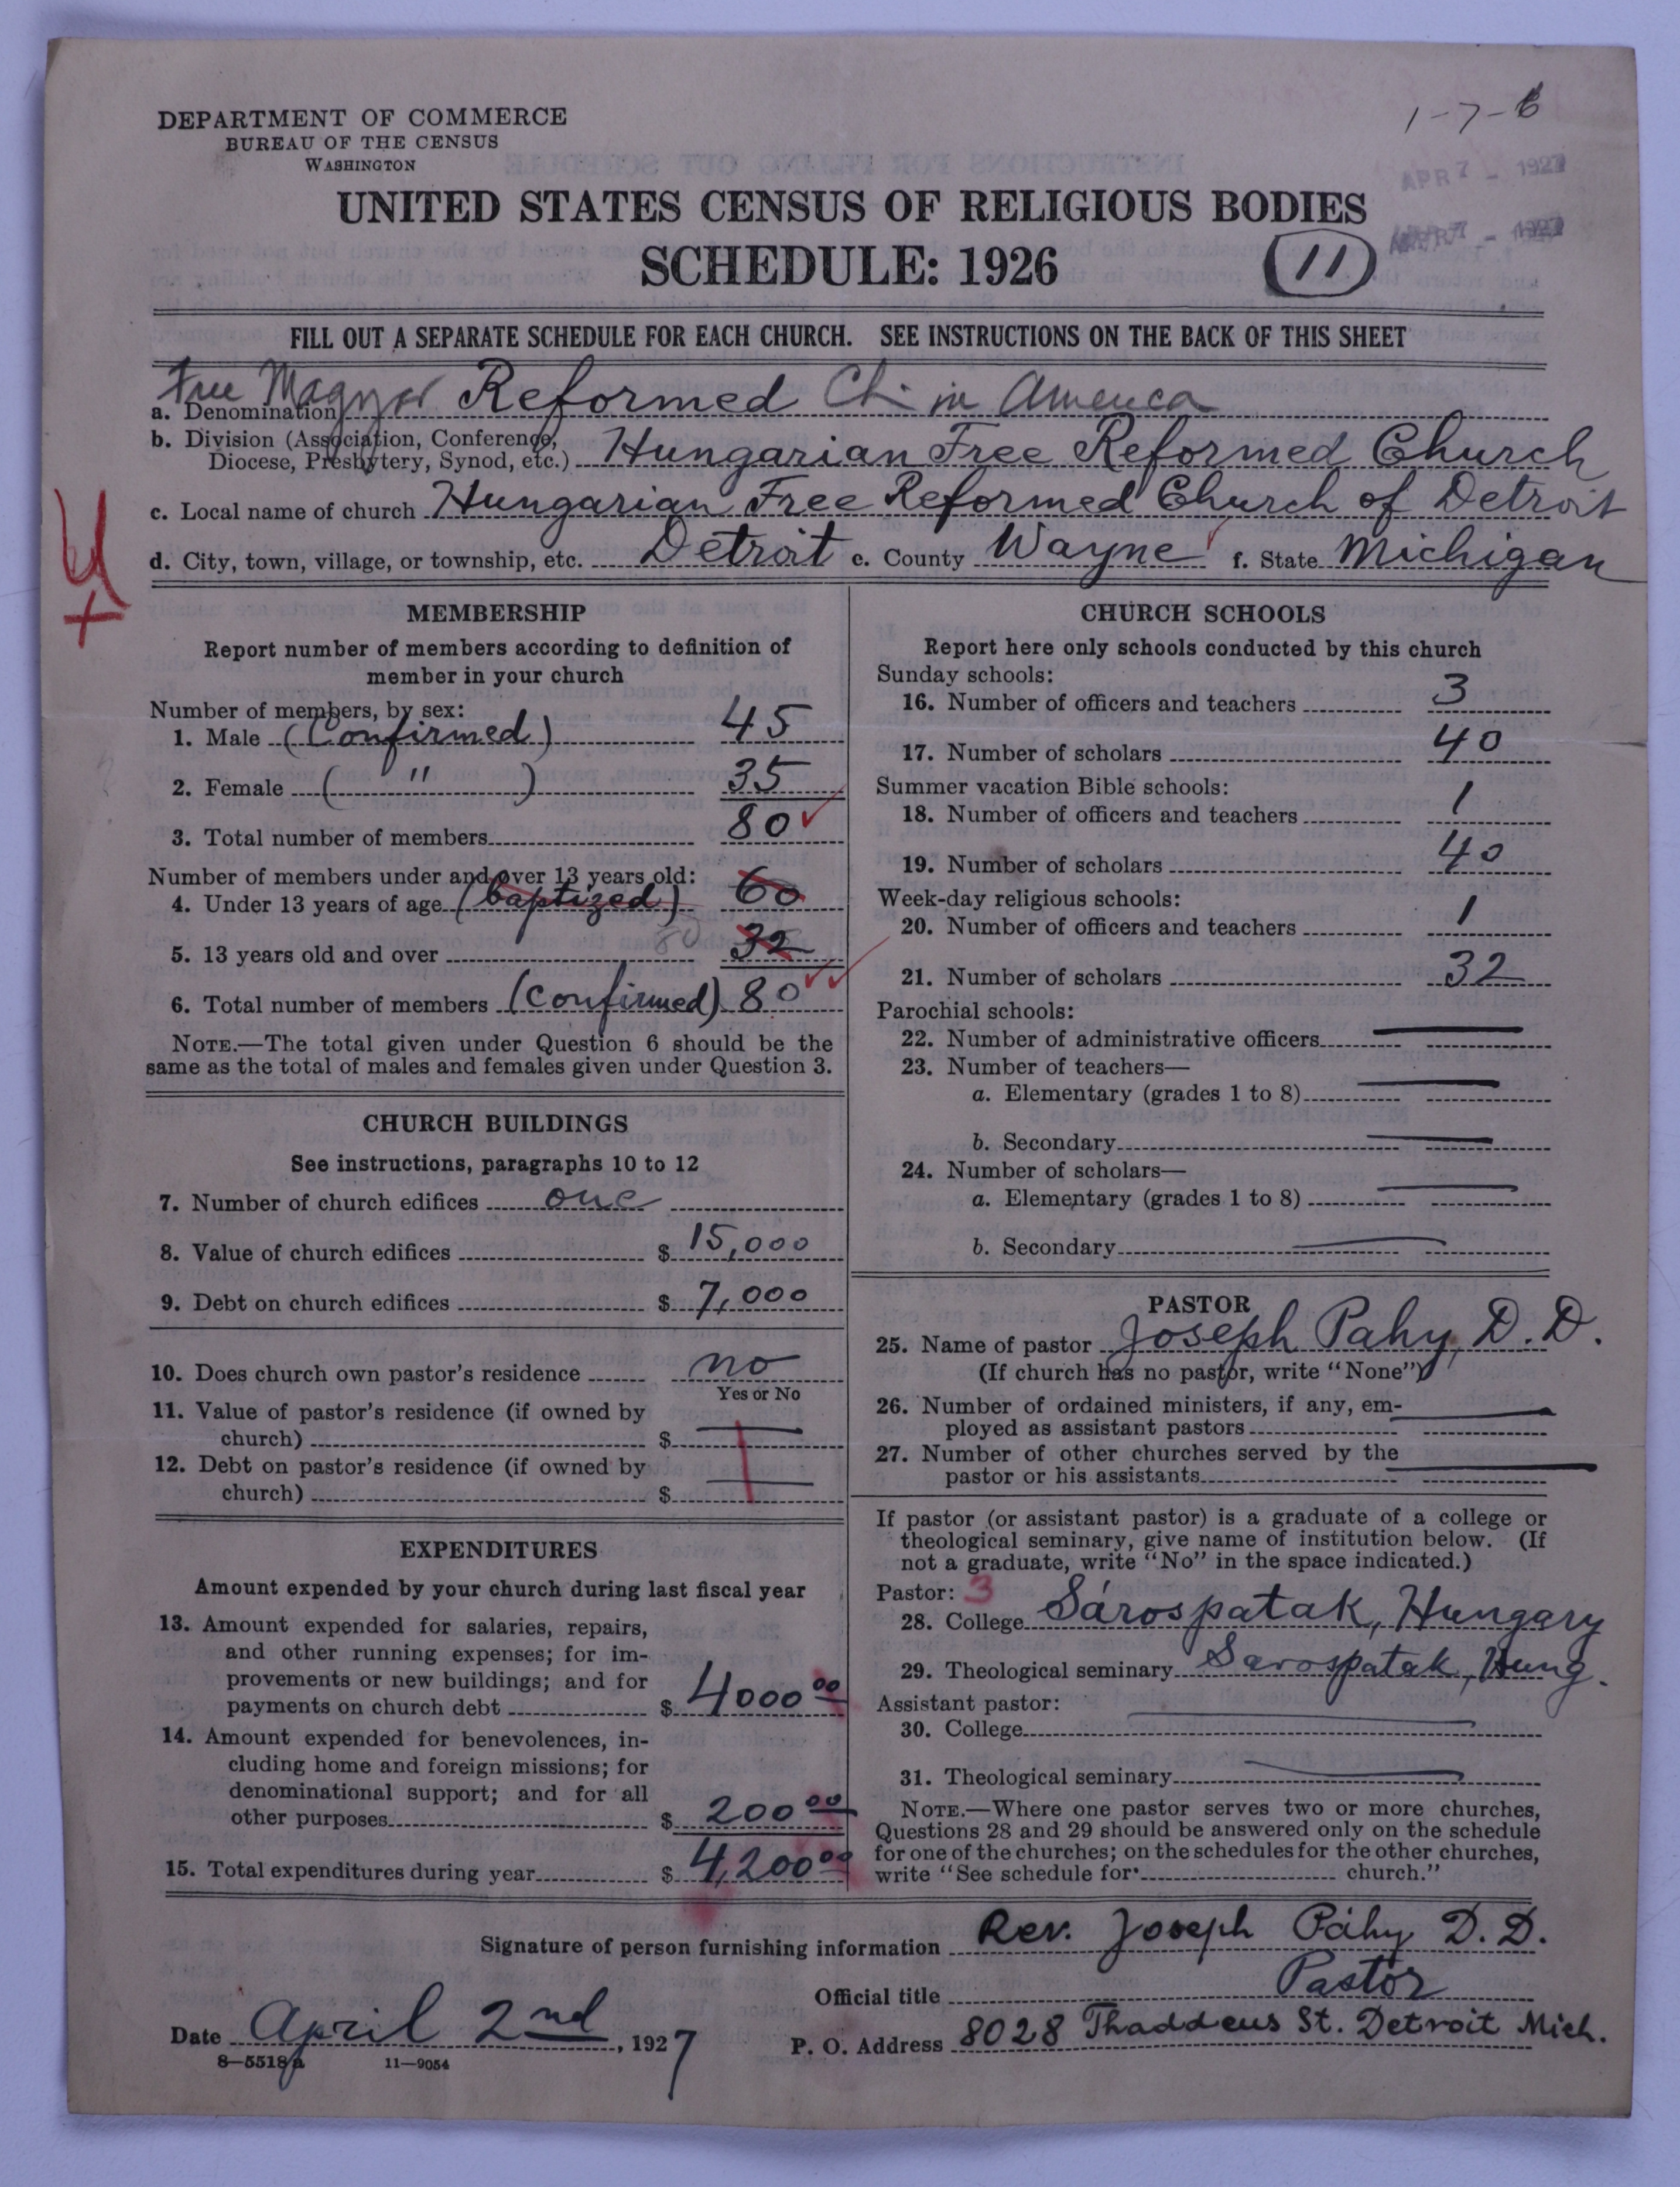 1-7-6
DEPARTMENT OF COMMERCE
BUREAU OF THE CENSUS
WASHINGTON
APR 7 - 1927
APR 7 - 1927
UNITED STATES CENSUS OF RELIGIOUS BODIES
SCHEDULE: 1926
11
FILL OUT A SEPARATE SCHEDULE FOR EACH CHURCH. SEE INSTRUCTIONS ON THE BACK OF THIS SHEET
a. Denomination Free Magyar Reformed Ch in America
b. Division (Association, Conference,
Diocese, Presbytery, Synod, etc.) Hungarian Free Reformed Church
c. Local name of church Hungarian Free Reformed Church of Detroit
d. City, town, village, or township, etc. Detroit e. County Wayne f. State Michigan
MEMBERSHIP
Report number of members according to definition of
member in your church
Number of members, by sex:
1. Male (Confirmed) 45
2. Female ( " ) 35
3. Total number of members 80
Number of members under and over 13 years old:
4. Under 13 years of age (baptized) 60
5. 13 years old and over 80 32
6. Total number of members (confirmed) 80
NOTE.—The total given under Question 6 should be the
same as the total of males and females given under Question 3.
CHURCH BUILDINGS
See instructions, paragraphs 10 to 12
7. Number of church edifices one
8. Value of church edifices $ 15,000
9. Debt on church edifices $ 7,000
10. Does church own pastor's residence no
Yes or No
11. Value of pastor's residence (if owned by
church) $
12. Debt on pastor's residence (if owned by
church) $
EXPENDITURES
Amount expended by your church during last fiscal year
13. Amount expended for salaries, repairs,
and other running expenses; for im-
provements or new buildings; and for
payments on church debt $ 4000 00
14. Amount expended for benevolences, in-
cluding home and foreign missions; for
denominational support; and for all
other purposes $ 200 00
15. Total expenditures during year $ 4,200 00
CHURCH SCHOOLS
Report here only schools conducted by this church
Sunday schools:
16. Number of officers and teachers 3
17. Number of scholars 40
Summer vacation Bible schools:
18. Number of officers and teachers 1
19. Number of scholars 40
Week-day religious schools:
20. Number of officers and teachers 1
21. Number of scholars 32
Parochial schools:
22. Number of administrative officers
23. Number of teachers—
a. Elementary (grades 1 to 8)
b. Secondary
24. Number of scholars—
a. Elementary (grades 1 to 8)
b. Secondary
PASTOR
25. Name of pastor Joseph Pahy, D. D.
(If church has no pastor, write "None")
26. Number of ordained ministers, if any, em-
ployed as assistant pastors
27. Number of other churches served by the
pastor or his assistants
If pastor (or assistant pastor) is a graduate of a college or
theological seminary, give name of institution below. (If
not a graduate, write "No" in the space indicated.)
Pastor: 3
28. College Sárospatak, Hungary
29. Theological seminary Sarospatak, Hung.
Assistant pastor:
30. College
31. Theological seminary
NOTE.—Where one pastor serves two or more churches,
Questions 28 and 29 should be answered only on the schedule
for one of the churches; on the schedules for the other churches,
write "See schedule for church."
Signature of person furnishing information Rev. Joseph Páhy D. D.
Official title Pastor
Date April 2nd, 1927 P. O. Address 8028 Thaddeus St. Detroit Mich.
8—5518a 11—9054